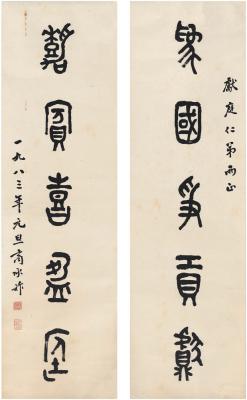 為國爭貢獻
獻庭仁弟兩正
嘉賓喜盈庭
一九八三年元旦商承祚